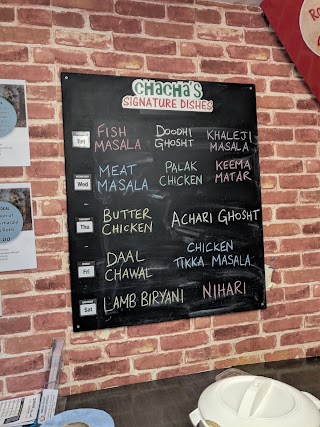 CHACHA'S
SIGNATURE DISHES
FISH MASALA
DOODHI GHOSHT
KHALEJI MASALA
Wed
MEAT MASALA
PALAK CHICKEN
KEEMA MATAR
Thu
BUTTER CHICKEN
ACHARI GHOSHT
Fri
DAAL CHAWAL
CHICKEN TIKKA MASALA
Sat
LAMB BIRYANI
NIHARI